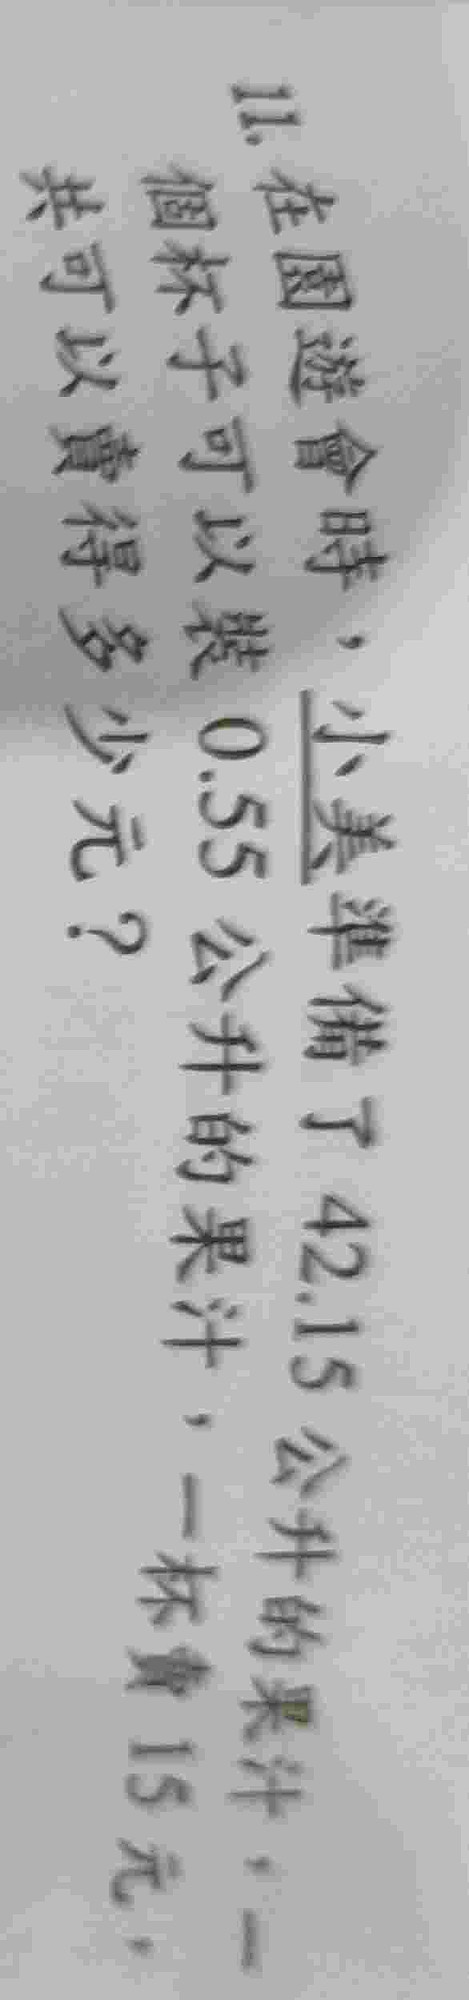 11. 在園遊會時，小美準備了 42.15 公升的果汁，一
個杯子可以裝 0.55 公升的果汁，一杯賣 15 元，
共可以賣得多少元？